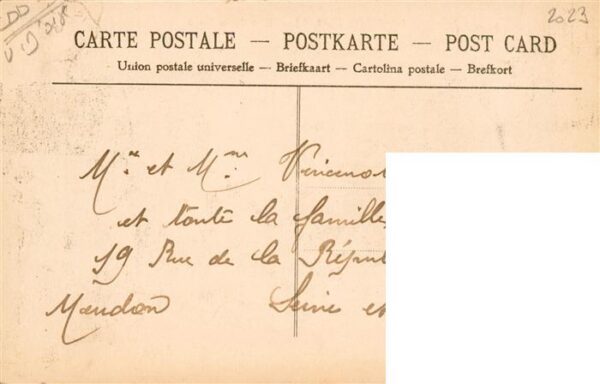 2023
DD
CARTE POSTALE — POSTKARTE — POST CARD
Union postale universelle — Briefkaart — Cartolina postale — Brefkort
Mr et Mme
et toute la famille
19 Rue de la
Meudon Seine et